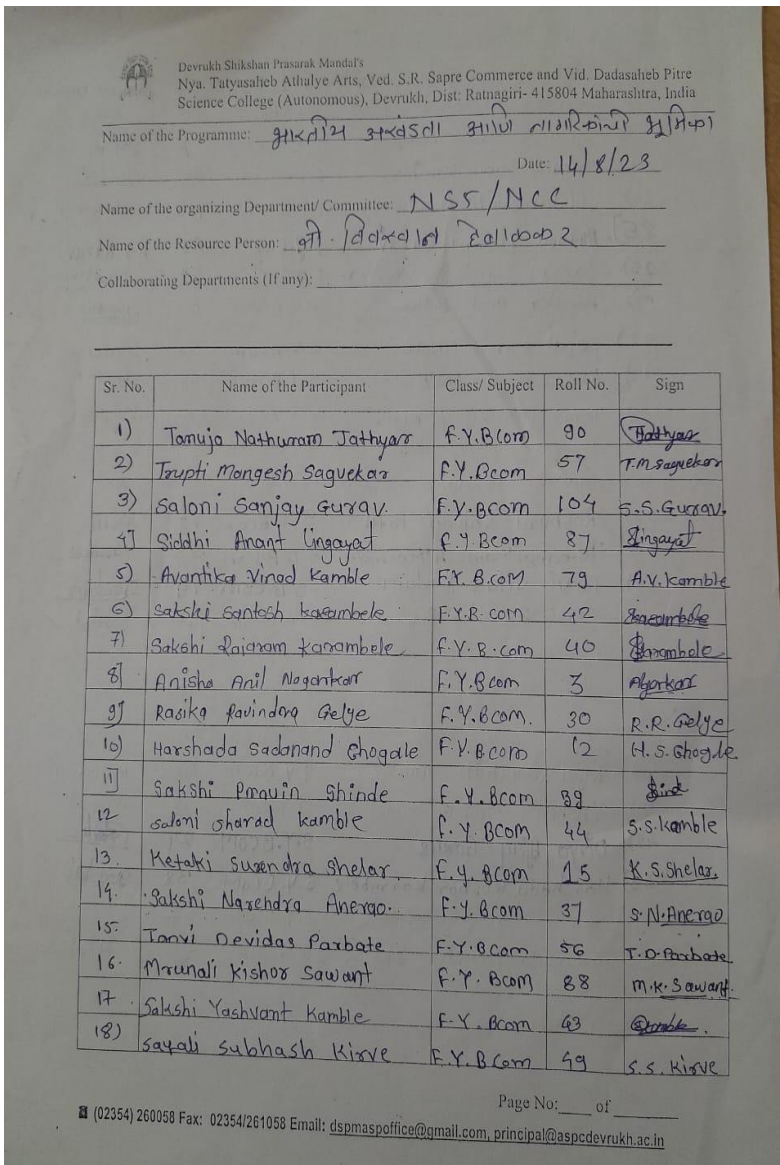 Devrukh Shikshan Prasarak Mandal's
Nya. Tatyasaheb Athalye Arts, Ved. S.R. Sapre Commerce and Vid. Dadasaheb Pitre
Science College (Autonomous), Devrukh, Dist: Ratnagiri- 415804 Maharashtra, India
Name of the Programme: भारतीय अखंडता आणि नागरिकांची भूमिका
Date: 14/8/23
Name of the organizing Department/ Committee: NSS/NCC
Name of the Resource Person: श्री.
Collaborating Departments (If any):
Sr. No. Name of the Participant Class/ Subject Roll No. Sign
1) Tanuja Nathuram Jathyar F.Y.BCom 90 Jathyar
2) Trupti Mangesh Saguekar F.Y.Bcom 57 T.M Saguekar
3) Saloni Sanjay Gurav. F.Y.Bcom 104 S.S.Gurav.
4] Siddhi Anant Lingayat F.Y.Bcom 87 Lingayat
5) Avantika Vinod Kamble F.Y. B.coM 79 A.V.Kamble
6) Sakshi Santosh Karambele F.Y.B.com 42 Karambele
7) Sakshi Rajaram Karambele F.Y.B.com 40 Karambele
8] Anisha Anil Nagarkar F.Y.Bcom 3
9) Rasika Ravindra Gelye F.Y.BCom. 30 R.R.Gelye
10) Harshada Sadanand Ghogale F.Y.B.com 12 H.S.Ghogle
11] Sakshi Pravin Shinde F.Y.Bcom
12 Saloni Sharad Kamble F.Y.BCom 44 S.S.Kamble
13. Ketaki Surendra Shelar. F.Y.BCom 15 K.S.Shelar.
14. Sakshi Narendra Anerao. F.Y.Bcom 37 S.N.Anerao
15. Tanvi Devidas Parbate F.Y.BCom 56 T.D.Parbate
16. Mrunali Kishor Sawant F.Y.Bcom 88 M.K.Sawant.
17 Sakshi Yashvant Kamble F.Y.Bcom 43
18) Sayali Subhash Kirve F.Y.BCom 49 S.S.Kirve
Page No:____ of ________
(02354) 260058 Fax: 02354/261058 Email: dspmaspoffice@gmail.com, principal@aspcdevrukh.ac.in